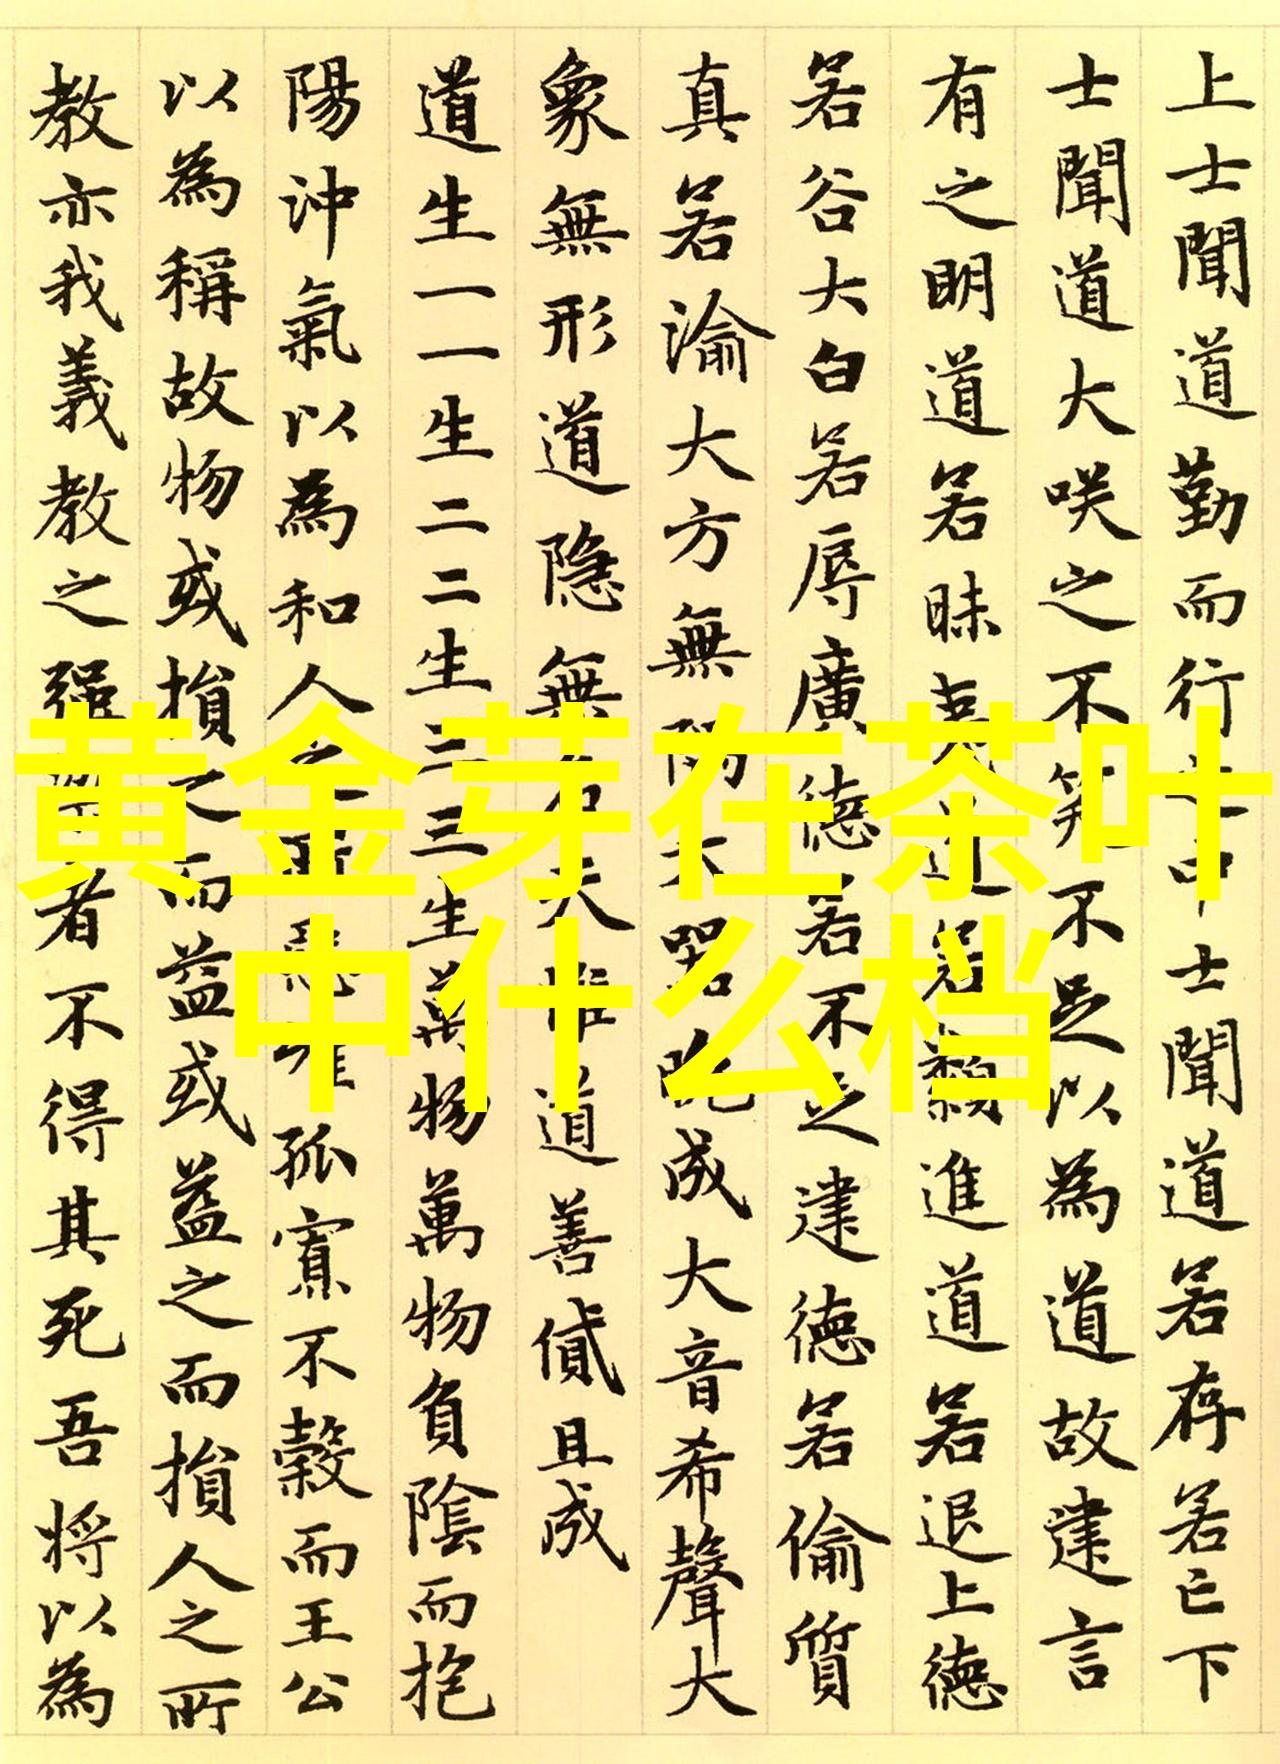 上士聞道勤而行之中士聞道若存若亡下
士聞道大咲之不笑不足以為道故建言
有之明道若昧夷道若纇進道若退上德
若谷大白若辱廣德若不足建德若偷質
真若渝大方無隅大器晚成大音希聲大
象無形道隐無名夫惟道善貸且成
道生一一生二二生三三生萬物萬物負陰而抱
陽沖氣以為和人之所惡唯孤寡不穀而王公
以為稱故物或損之而益或益之而損人之所
教亦我義教之强梁者不得其死吾将以為
黄金芽在茶叶
中什么档